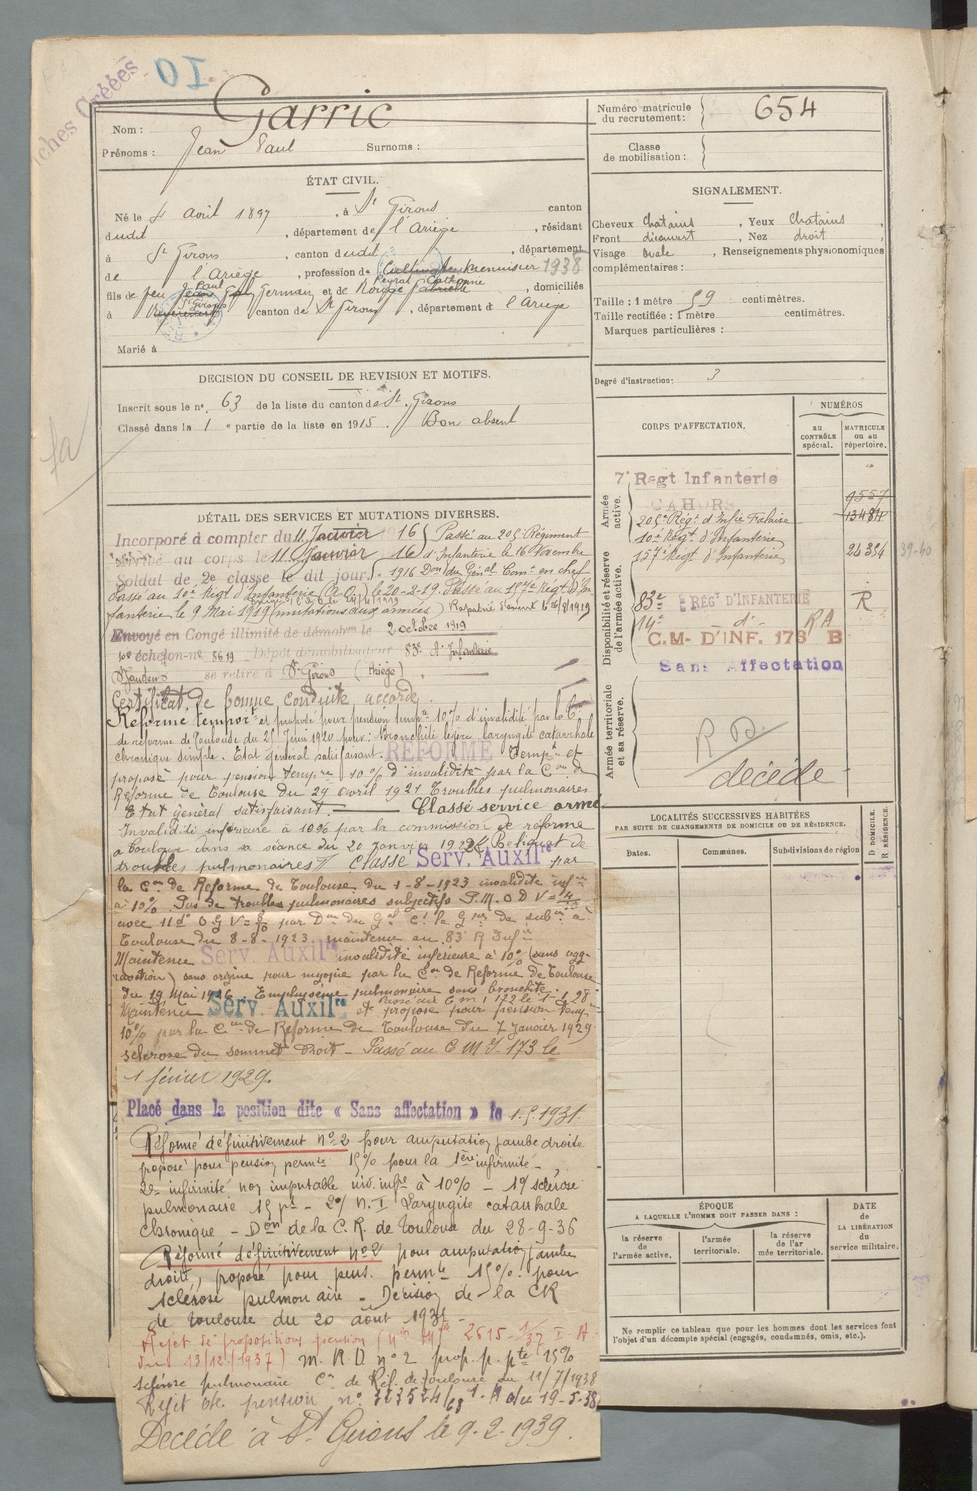 iches Créées
Nom : Garric
Prénoms : Jean Paul Surnoms :
ÉTAT CIVIL.
Né le 4 avril 1897, à St Girons canton
dudit, département de l'Ariège, résidant
à St Girons, canton dudit, département
de l'Ariège, profession de menuisier 1938
fils de feu Paul Germain et de Peyrat Cathonne, domiciliés
à St Girons canton de St Girons, département d l'Ariège
Marié à
DECISION DU CONSEIL DE REVISION ET MOTIFS.
Inscrit sous le n°. 63 de la liste du canton de St. Girons
Classé dans la 1 e partie de la liste en 1915. Bon absent
DÉTAIL DES SERVICES ET MUTATIONS DIVERSES.
Incorporé à compter du 11 Janvier 16 Passé au 205e Régiment
Arrivé au corps le 11 Janvier 16 d'Infanterie le 16 Novembre
Soldat de 2e classe le dit jour. 1916 Don du Génal Comt en chef
Passé au 10e Régt d'Infanterie le 20-2-19. Passé au 157e Régt d'In
fanterie le 9 Mai 1919 (mutations aux armées) Rapatrié d'orient le 26/8/1919
Envoyé en Congé illimité de démobon le 2 octobre 1919
échelon-n° 5619 Dépôt démobilisateur 83e d'Infanterie
se retire à St Girons (Ariège)
Certificat de bonne conduite accordé
Réformé tempore et proposé pour pension tempre 10% d'invalidité par la Con
de réforme de Toulouse du 25 Juin 1920 pour : Bronchite légère laryngite catarrhale
chronique simple. Etat général satisfaisant. RÉFORMÉ Tempre et
proposé pour pension tempre 10% d'invalidité par la Con de
Réforme de Toulouse du 29 avril 1921 Troubles pulmonaires
Etat général satisfaisant. Classé service armé
Invalidité inférieure à 10% par la commission de réforme
à Toulouse dans sa séance du 20 Janvier 1922 Reliquat de
troubles pulmonaires Classé Serv. Auxilre par
la Con de Réforme de Toulouse du 1-8-1923 invalidité infre
à 10%. Pas de troubles pulmonaires subjectifs P.M.O D V =
avec 11d° O G V = 8/10 par Don du Gal Ct le Ger de subon à
Toulouse du 8-8-1923 maintenu au 83e R Infie
Maintenu Serv. Auxilre invalidité inférieure à 10% (sans agg-
ravation) sans origine pour myopie par la Con de Réforme de Toulouse
du 19 Mai 1926. Emphysème pulmonaire sans bronchite. Passé au C m I 172 le 1-1-28
Maintenu Serv. Auxilre et proposé pour pension temp.
10% par la Con de Réforme de Toulouse du 7 Janvier 1929
sclérose du sommet droit - Passé au C M I - 173 le
1 février 1929.
Placé dans la position dite « Sans affectation » le 1.5.1931.
Réformé définitivement n° 2 pour amputation jambe droite
proposé pour pension permte 15% pour la 1ère infirmité -
2e infirmité non imputable inv. infre à 10% - 1° sclérose
pulmonaire 15 pte - 2° N. I Laryngite catarrhale
chronique - Don de la C. R. de Toulouse du 28-9-36
Réformé définitivement n° 2 pour amputation jambe
droite, proposé pour pens. permte 15% pour
sclérose pulmonaire - Décision de la CR
de Toulouse du 20 août 193
Rejet de propositions pension 2615 I-A
du 13/12/1937) m. R.D n° 2 prop. p. pte 15%
sclérose pulmonaire Cn de Réf. de Toulouse du 11/7/1938
Rejet de pension n° 323524/68 du 19-5-38
Décédé à St Girons le 9-2-1939.
Numéro matricule du recrutement : 654
Classe de mobilisation :
SIGNALEMENT.
Cheveux chatains, Yeux Chatains,
Front découvert, Nez droit,
Visage ovale, Renseignements physionomiques
complémentaires :
Taille : 1 mètre 59 centimètres.
Taille rectifiée : 1 mètre centimètres.
Marques particulières :
Degré d'instruction : 3
CORPS D'AFFECTATION.
NUMÉROS
au CONTRÔLE spécial.
MATRICULE ou au répertoire.
Armée active.
7e Regt Infanterie
CAHORS 9557
205e Régt d'Infie 13484
10e Régt d'Infanterie
157e Régt d'Infanterie 24354 39-40
Disponibilité et réserve de l'armée active.
83e RÉGT D'INFANTERIE R
14e - d° - R A
C.M- D'INF. 173 B
Sans Affectation
Armée territoriale et sa réserve.
R D.
décédé
LOCALITÉS SUCCESSIVES HABITÉES
PAR SUITE DE CHANGEMENTS DE DOMICILE OU DE RÉSIDENCE.
Dates.
Communes.
Subdivisions de région
D DOMICILE.
R RÉSIDENCE.
ÉPOQUE
A LAQUELLE L'HOMME DOIT PASSER DANS :
la réserve de l'armée active.
l'armée territoriale.
la réserve de l'ar mée territoriale.
DATE de LA LIBÉRATION du service militaire.
Ne remplir ce tableau que pour les hommes dont les services font
l'objet d'un décompte spécial (engagés, condamnés, omis, etc.).